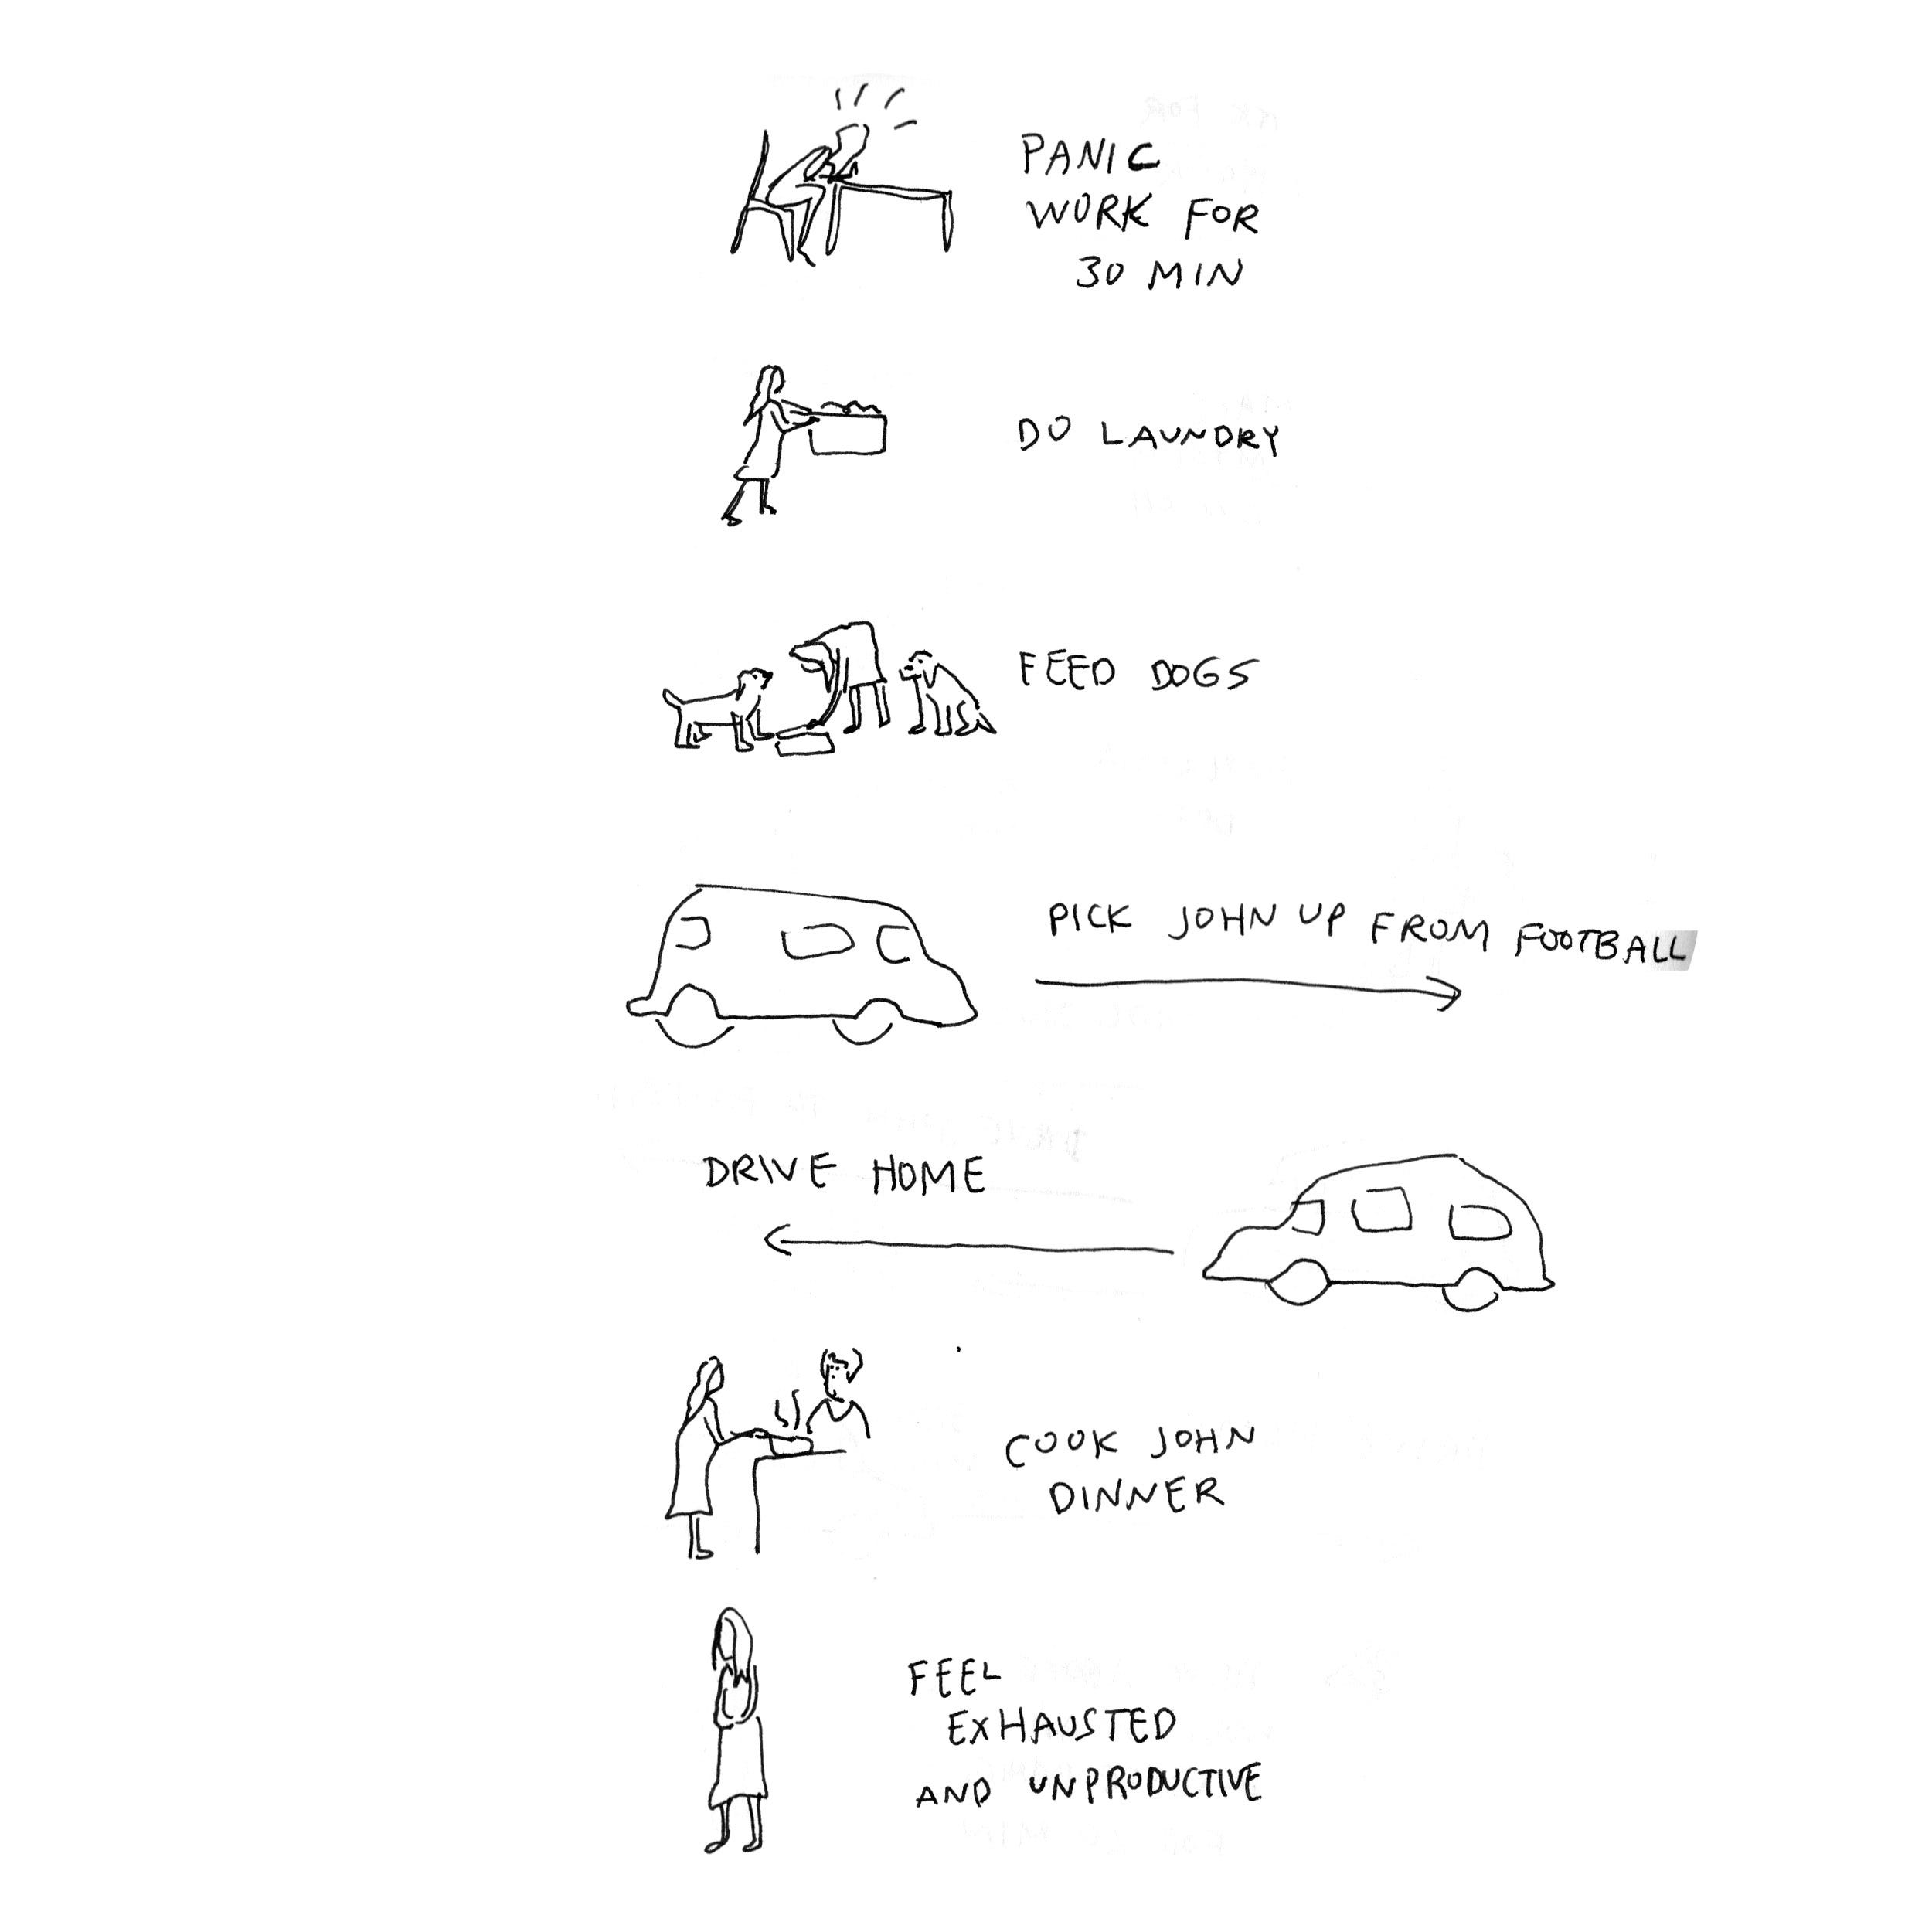 PANIC
WORK FOR
30 MIN
DO LAUNDRY
FEED DOGS
PICK JOHN UP FROM FOOTBALL
DRIVE HOME
COOK JOHN
DINNER
FEEL
EXHAUSTED
AND UNPRODUCTIVE